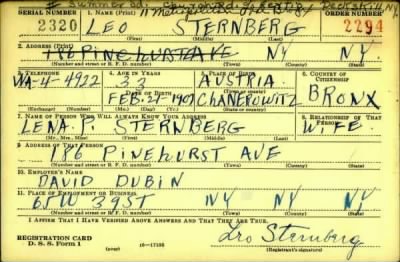 SERIAL NUMBER 1. NAME (Print) ORDER NUMBER
2320 LEO STERNBERG 2294
(First) (Middle) (Last)
2. ADDRESS (Print)
PINEHURST AVE NY NY
(Number and street or R. F. D. number) (Town) (County) (State)
3. TELEPHONE 4. AGE IN YEARS 5. PLACE OF BIRTH 6. COUNTRY OF CITIZENSHIP
WA-4-4922 33 AUSTRIA
DATE OF BIRTH
FEB-24-1907 CHANEROWITZ BRONX
(Exchange) (Number) (Mo.) (Day) (Yr.) (Town or county) (State or country)
7. NAME OF PERSON WHO WILL ALWAYS KNOW YOUR ADDRESS 8. RELATIONSHIP OF THAT PERSON
LENA P. STERNBERG WIFE
(Mr., Mrs., Miss) (First) (Middle) (Last)
9. ADDRESS OF THAT PERSON
116 PINEHURST AVE
(Number and street or R. F. D. number) (Town) (County) (State)
10. EMPLOYER'S NAME
DAVID DUBIN
11. PLACE OF EMPLOYMENT OR BUSINESS
39ST NY NY
(Number and street or R. F. D. number) (Town) (County) (State)
I AFFIRM THAT I HAVE VERIFIED ABOVE ANSWERS AND THAT THEY ARE TRUE.
REGISTRATION CARD
D. S. S. Form 1 (over) 16—17105 Leo Sternberg
(Registrant's signature)